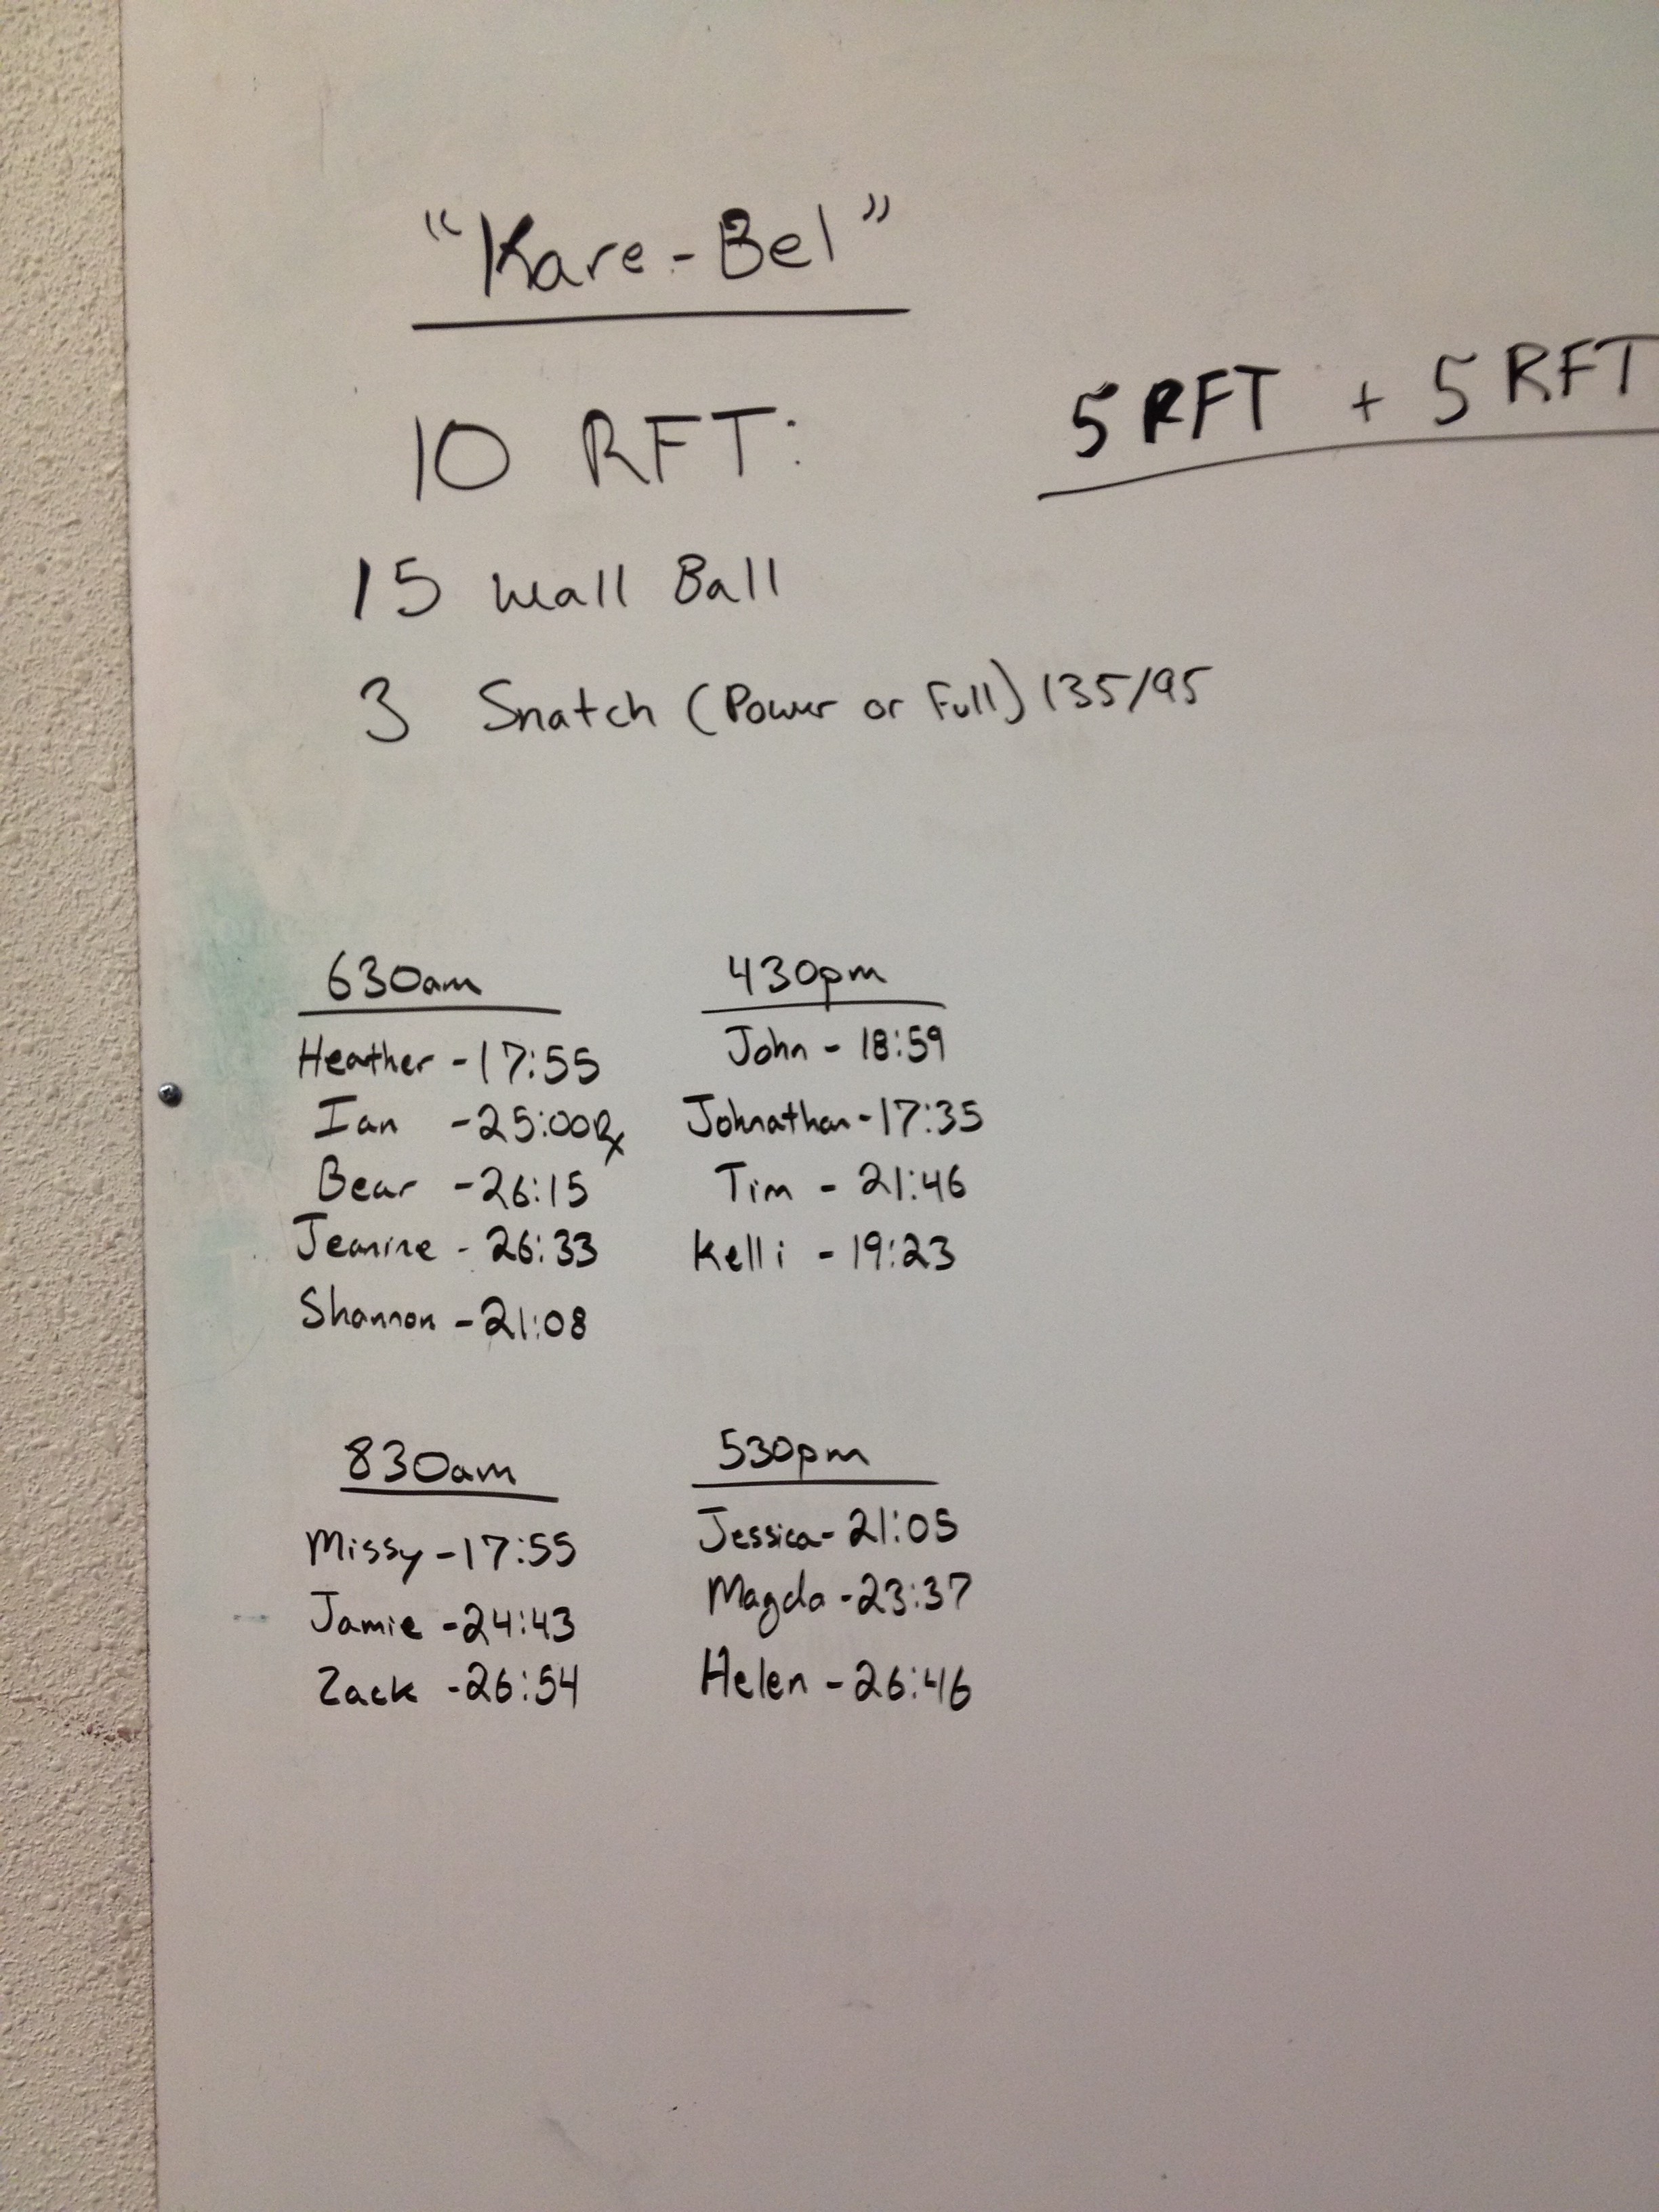 "Kare-Bel"
10 RFT:
5 RFT + 5 RFT
15 Wall Ball
3 Snatch (Power or Full) 135/95
630am
Heather - 17:55
Ian - 25:00 Rx
Bear - 26:15
Jeanine - 26:33
Shannon - 21:08
430pm
John - 18:59
Johnathan - 17:35
Tim - 21:46
Kelli - 19:23
830am
Missy - 17:55
Jamie - 24:43
Zack - 26:54
530pm
Jessica - 21:05
Magda - 23:37
Helen - 26:46